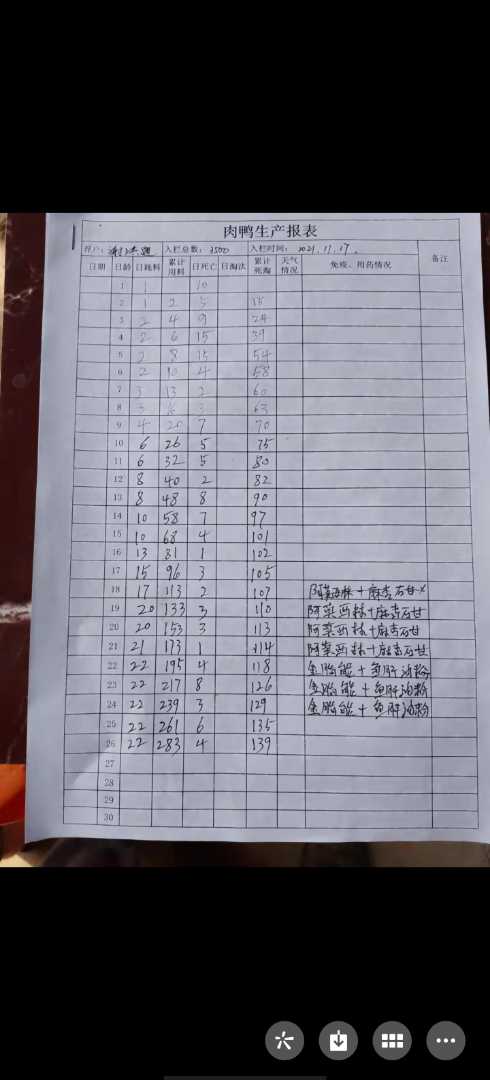 肉鸭生产报表
养户： 入栏总数：3500 入栏时间：2021.11.17. 备注
日期 日龄 日耗料 累计用料 日死亡 日淘汰 累计死淘 天气情况 免疫、用药情况
1 1 10
2 1 2 5 15
3 2 4 9 24
4 2 6 15 39
5 2 8 15 54
6 2 10 4 58
7 3 13 2 60
8 3 16 3 63
9 4 20 7 70
10 6 26 5 75
11 6 32 5 80
12 8 40 2 82
13 8 48 8 90
14 10 58 7 97
15 10 68 4 101
16 13 81 1 102
17 15 96 3 105
18 17 113 2 107 阿莫西林+麻杏石甘
19 20 133 3 110 阿莫西林+麻杏石甘
20 20 153 3 113 阿莫西林+麻杏石甘
21 21 173 1 114 阿莫西林+麻杏石甘
22 22 195 4 118 鱼肝油粉
23 22 217 8 126 鱼肝油粉
24 22 239 3 129 鱼肝油粉
25 22 261 6 135
26 22 283 4 139
27
28
29
30